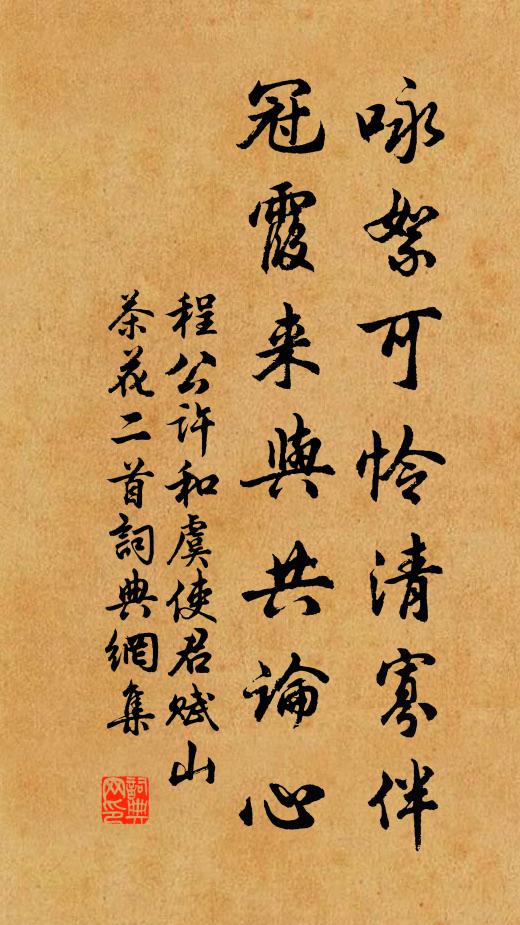 咏絮可怜清寡伴
冠霞来與共論心
程公许和虞使君赋山
茶花二首詞典網集
詞典网印